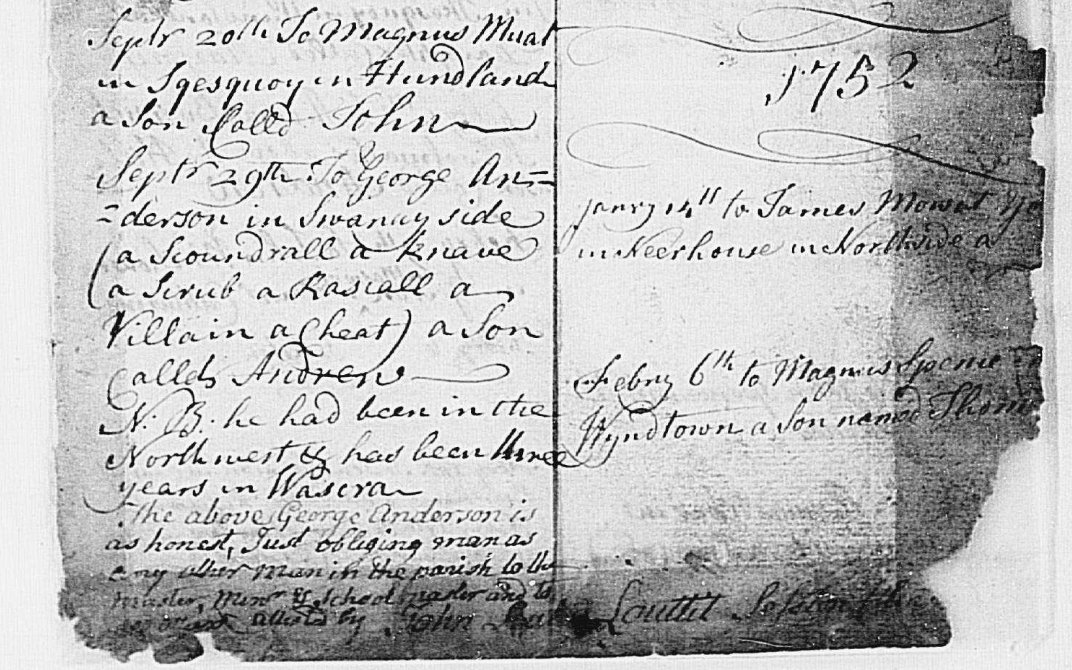 Septr 20th To Magnus Muat
in Sqesquoy in Hundland
a Son Calld John
Septr 29th To George An=
=derson in Swanay side
(a Scoundrall a knave
(a Scrub a Rascall a
Villain a Cheat) a Son
Calld Andrew
N. B. he had been in the
North west & has been three
years in
The above George Anderson is
as honest, Just obliging man as
any other man in the parish to the
master, Minr & School master and
attested by John Louttit Session
1752
Janry 14th to James Mowat
in Neerhouse in Northside a
Febry 6th to Magnus Spence
Wyndtown a Son named Thom